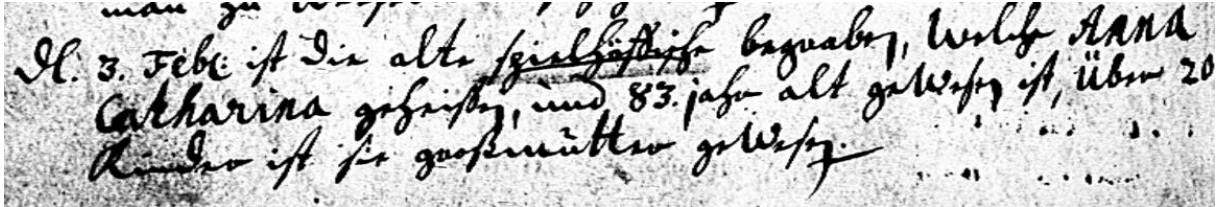 man zu
Dl. 3. Febr: ist die alte Spielhöffische begraben, welche ANNA
Catharina geheißen, und 83. jahr alt gewesen ist, Über 20
Kinder ist sie großmutter gewesen.